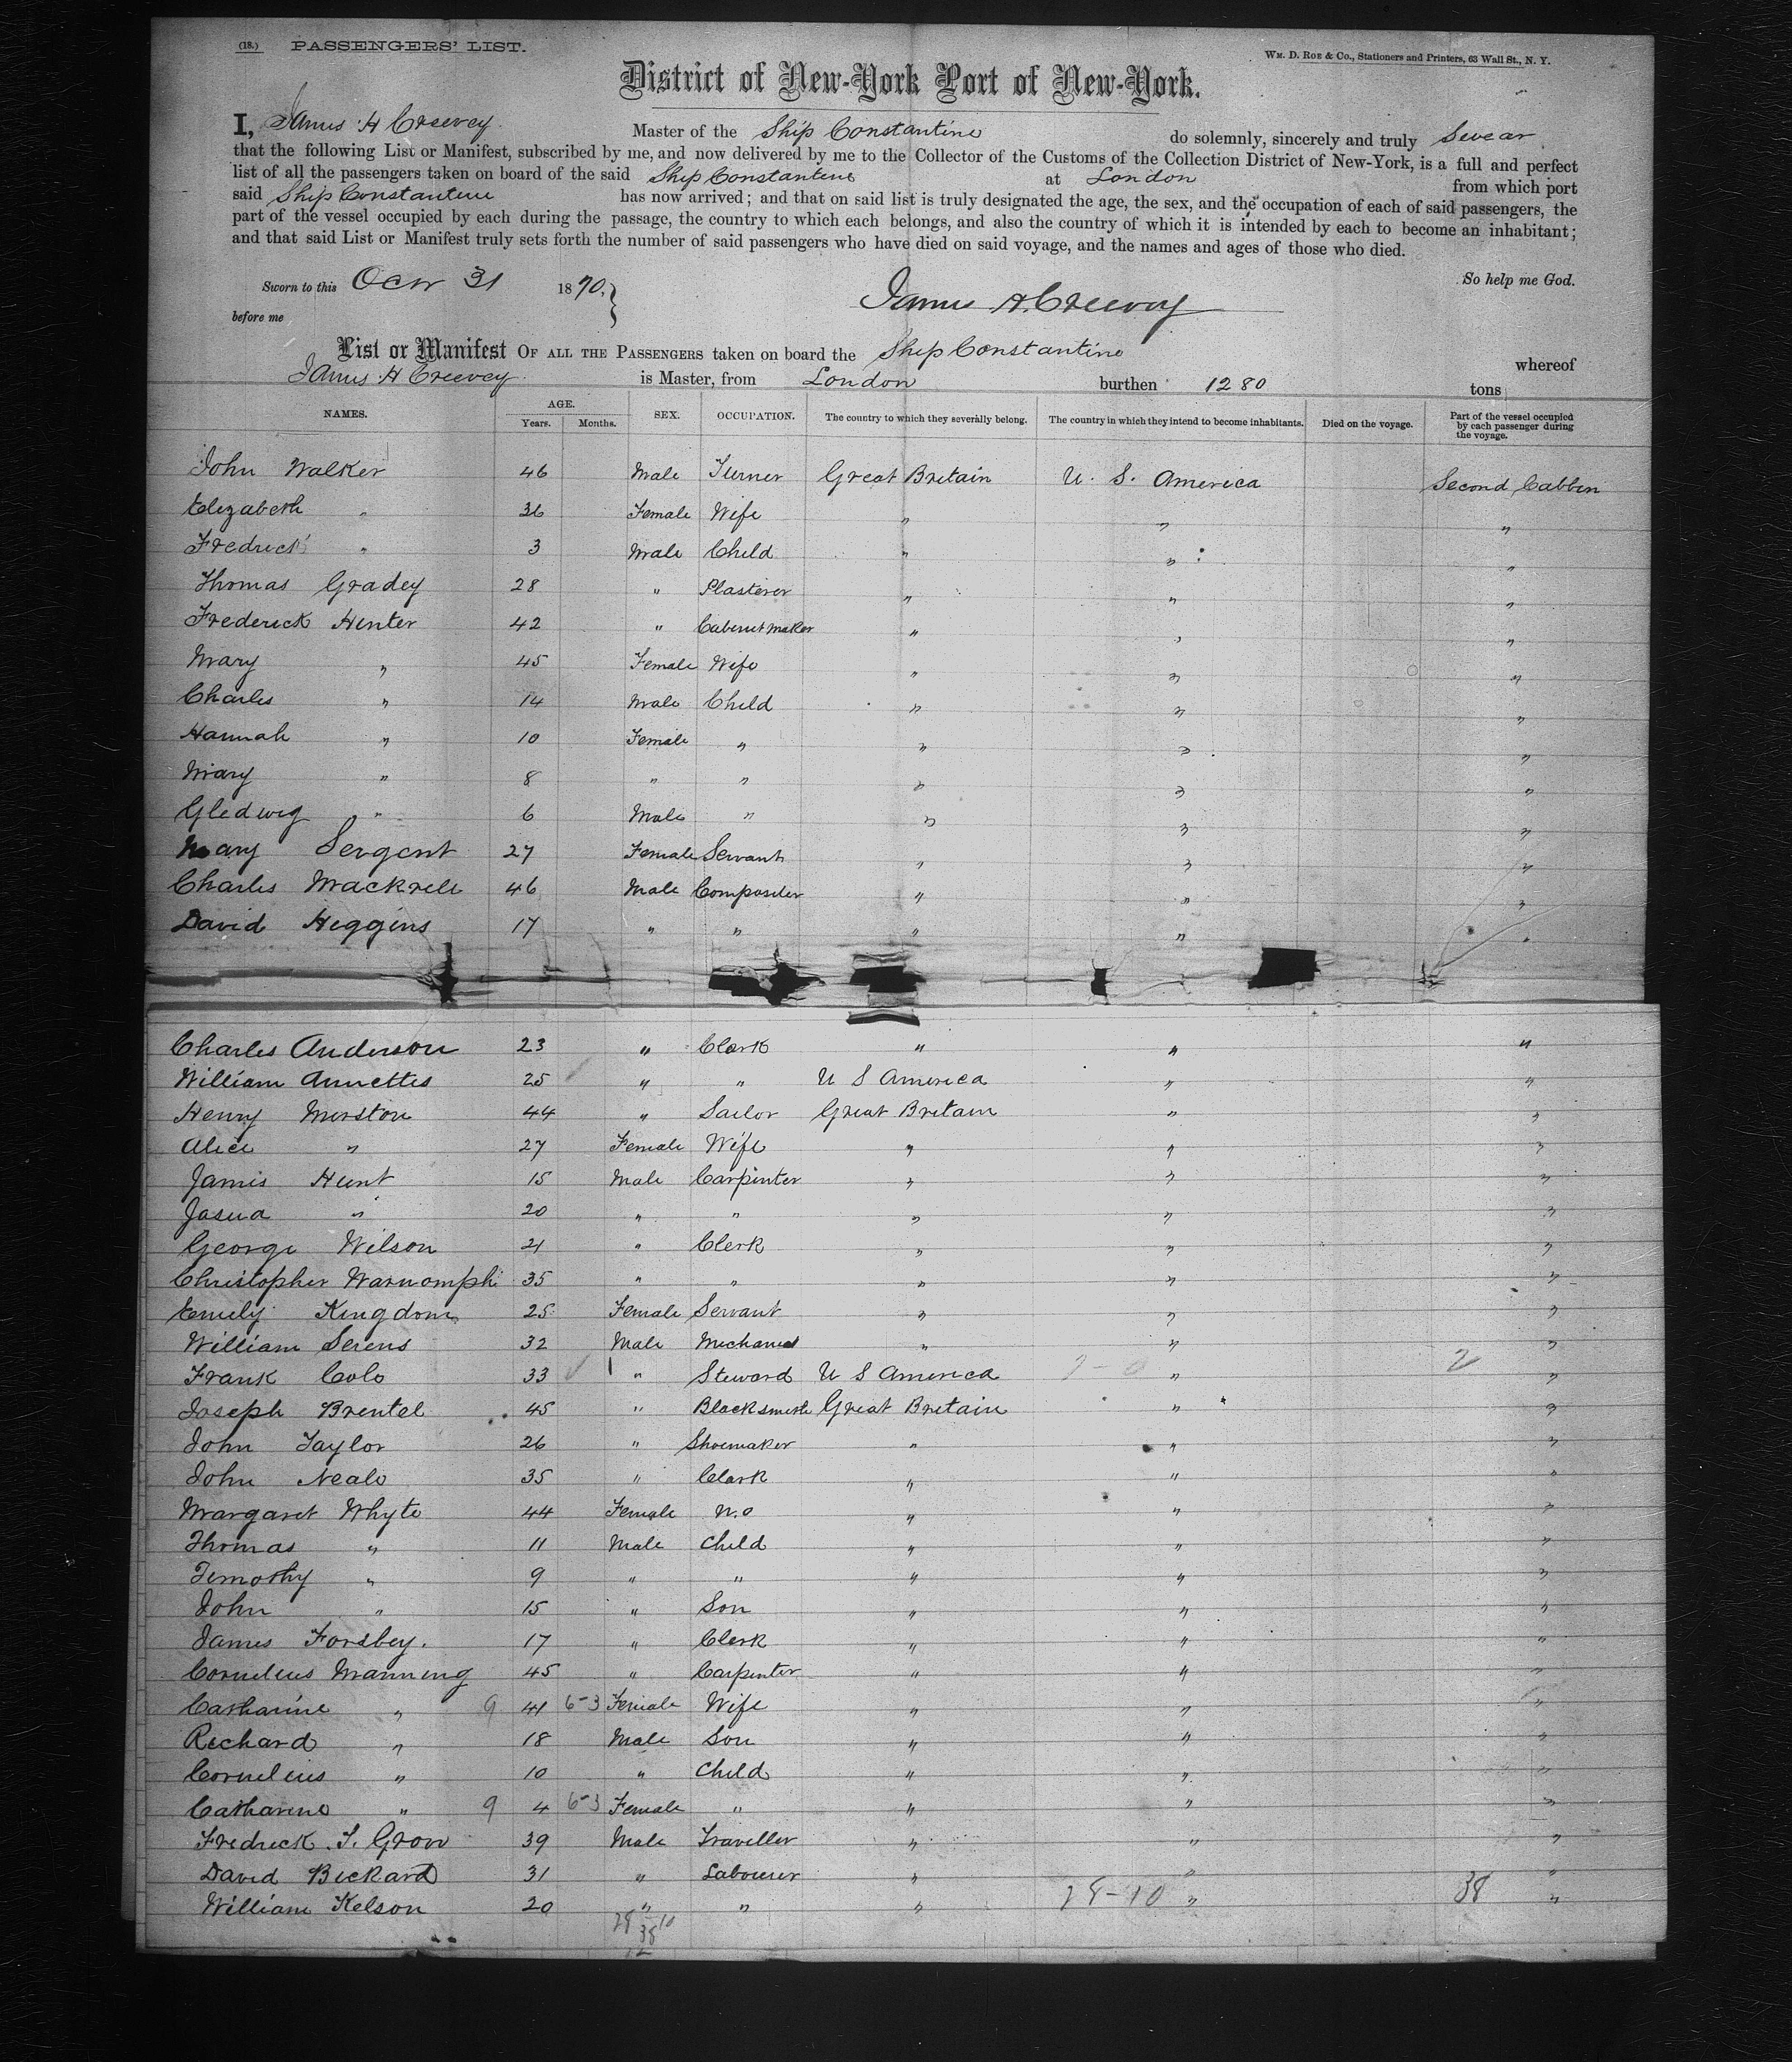 (18.) PASSENGERS' LIST.
WM. D. ROE & CO., Stationers and Printers, 63 Wall St., N. Y.
District of New-York Port of New-York.
I, James H Creevey Master of the Ship Constantine do solemnly, sincerely and truly Swear
that the following List or Manifest, subscribed by me, and now delivered by me to the Collector of the Customs of the Collection District of New-York, is a full and perfect
list of all the passengers taken on board of the said Ship Constantine at London from which port
said Ship Constantine has now arrived; and that on said list is truly designated the age, the sex, and the occupation of each of said passengers, the
part of the vessel occupied by each during the passage, the country to which each belongs, and also the country of which it is intended by each to become an inhabitant;
and that said List or Manifest truly sets forth the number of said passengers who have died on said voyage, and the names and ages of those who died.
So help me God.
Sworn to this 31 1870,
before me
James H. Creevey
List or Manifest OF ALL THE PASSENGERS taken on board the Ship Constantine whereof
James H Creevey is Master, from London burthen 1280 tons
NAMES. AGE. Years. Months. SEX. OCCUPATION. The country to which they severally belong. The country in which they intend to become inhabitants. Died on the voyage. Part of the vessel occupied by each passenger during the voyage.
John Walker 46 Male Turner Great Britain U. S. America Second Cabbin
Elizabeth " 36 Female Wife " " "
Fredrick " 3 Male Child " " "
Thomas Gradey 28 " Plasterer " " "
Frederick Hunter 42 " Cabinet maker " " "
Mary " 45 Female Wife " " "
Charles " 14 Male Child " " "
Hannah " 10 Female " " " "
Mary " 8 " " " " "
Gledwig " 6 Male " " " "
Mary Sergent 27 Female Servant " " "
Charles Mackrele 46 Male Compositer " " "
David Higgins 17 " " " " "
Charles Anderson 23 " Clark " " "
William Annettis 25 " " U S America " "
Henry Morston 44 " Sailor Great Britain " "
Alice " 27 Female Wife " " "
Jamis Hunt 15 Male Carpinter " " "
Jasua " 20 " " " " "
George Wilson 21 " Clerk " " "
Christopher Warnomph 35 " " " " "
Emily Kingdom 25 Female Servant " " "
William Serens 32 Male Mechanic " " "
Frank Cole 33 " Steward U S America " 2 "
Joseph Brentel 45 " Blacksmith Great Britain " "
John Taylor 26 " Shoemaker " " "
John Neale 35 " Clark " " "
Margaret Whyte 44 Female N.o " " "
Thomas " 11 Male Child " " "
Timothy " 9 " " " " "
John " 15 " Son " " "
James Forsbey. 17 " Clerk " " "
Cornelius Manning 45 " Carpinter " " "
Catharine " 9 41 6-3 Female Wife " " "
Richard " 18 Male Son " " "
Cornelius " 10 " Child " " "
Catharine " 9 4 6-3 Female " " " "
Fredrick. T. Grow 39 Male Traveller " " "
David Bickard 31 " Labourer " " "
William Kelson 20 " " " 28-10 " 38 "
28 10
38